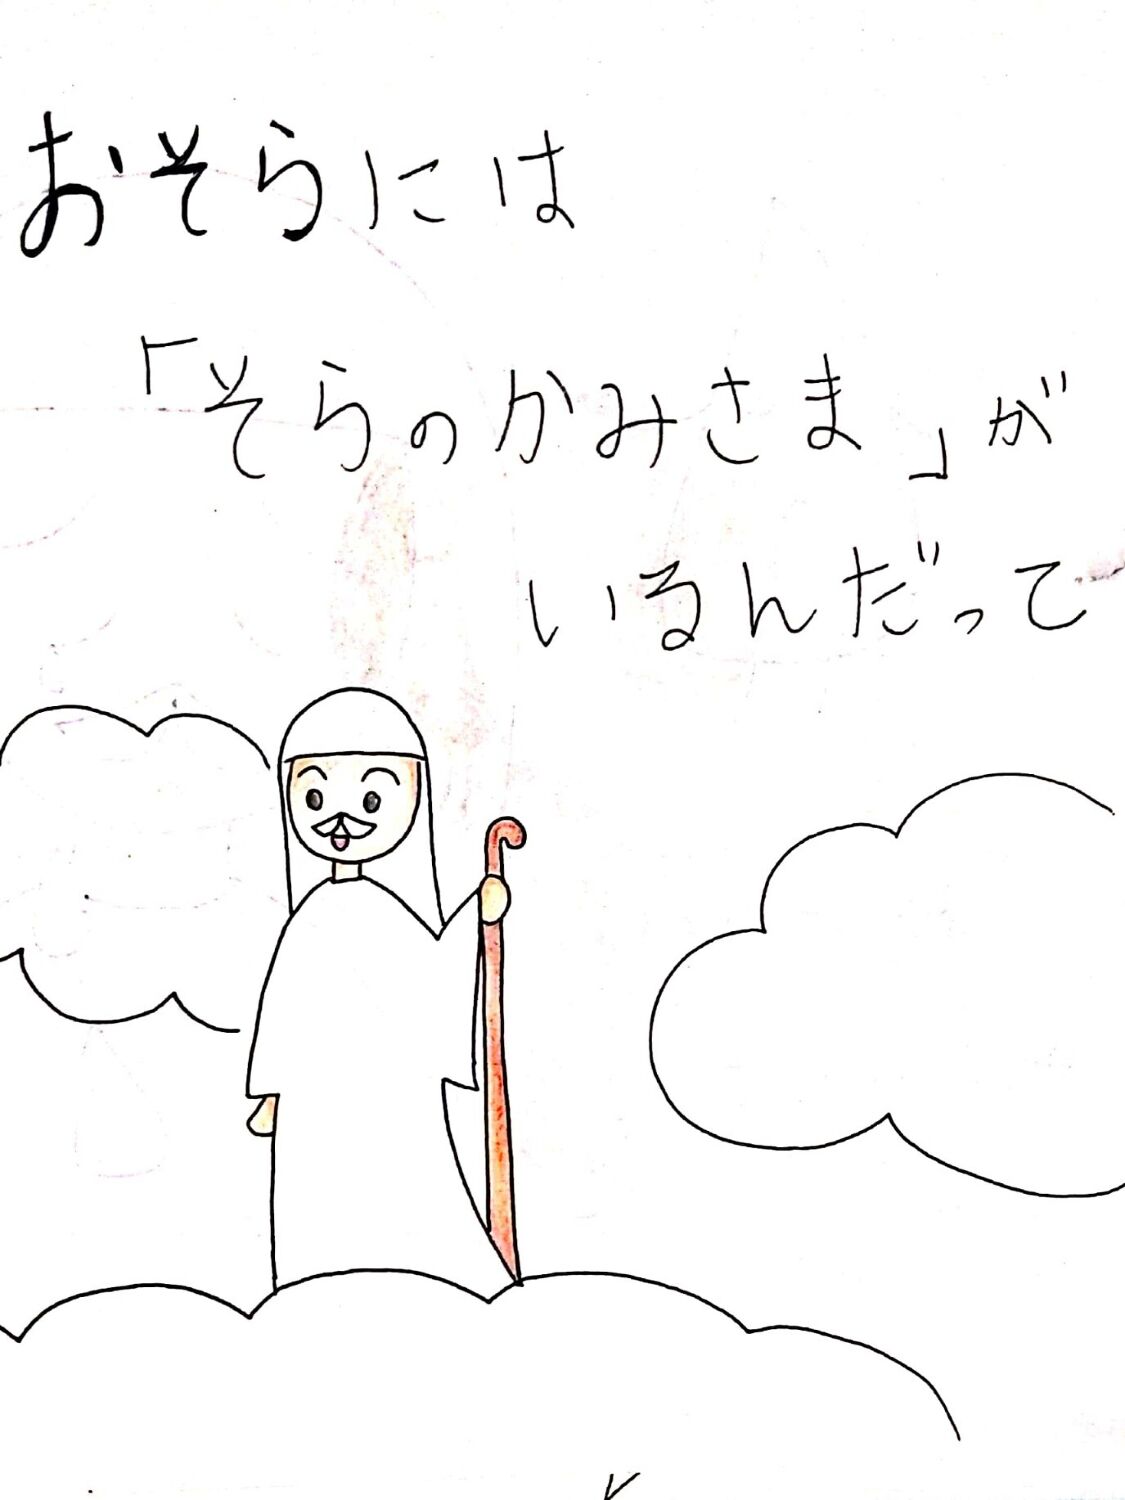 おそらには
「そらのかみさま」が
いるんだって